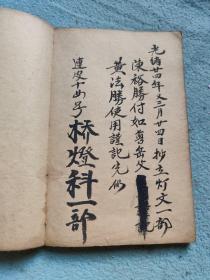 光緒廿四年又三月廿四日抄立灯文一部
陳裕勝付如尊岳父
黄法勝使用謹記完仍
連皮十め子
桥燈科一部